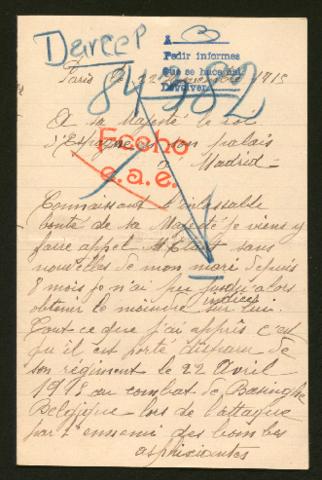 Darcel
A
Pedir informes
que se hace así
Devolver
Paris le 22 1915
84382
A sa Majesté le roi
d'Espagne en son palais
Fecho
à Madrid
e.a.e.
Connaissant l'inlassable
bonté de sa Majesté je viens y
faire appel. M'étant sans
nouvelles de mon mari depuis
8 mois je n'ai pu jusqu'alors
obtenir le moindre indices sur lui.
Tout ce que j'ai appris c'est
qu'il est porté disparu de
son régiment le 22 Avril
1915 au combat de Bœsinghe
Belgique lors de l'attaque
par l'ennemi des bombes
asphixiantes